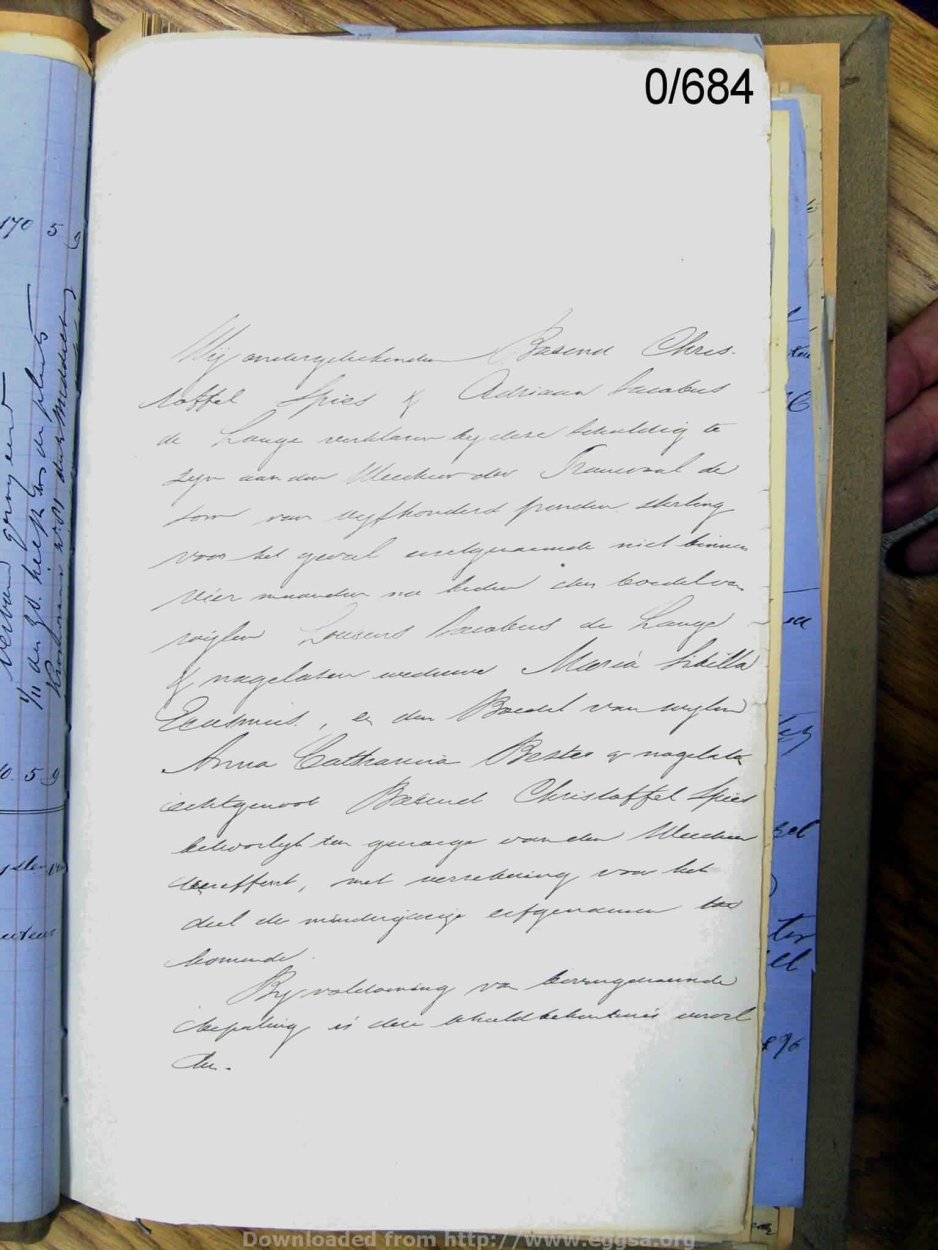 0/684
Wij ondergeteekenden Barend Chris-
toffel Spies & Adriaan Jacobus
de Lange verklaren by deze schuldig te
zijn aan den Weesheer der Transvaal de
som van vijfhonderd ponden sterling
voor het geval eerstgenoemde niet binnen
vier maanden na heden den boedel van
wijlen Lourens Jacobus de Lange
& nagelaten weduwe Maria Sibilla
Erasmus, en den Boedel van wijlen
Anna Catharina Bester & nagelaten
echtgenoot Barend Christoffel Spies
behoorlyk ten genoege van den Weesheer
vereffent, met verzekering van het
deel de minderjarige erfgenamen toe
komende.
By voldoening van bovengenoemde
bepaling is deze schuldbekentenis verval
len.
170 5
5
Downloaded from http://www.eggsa.org